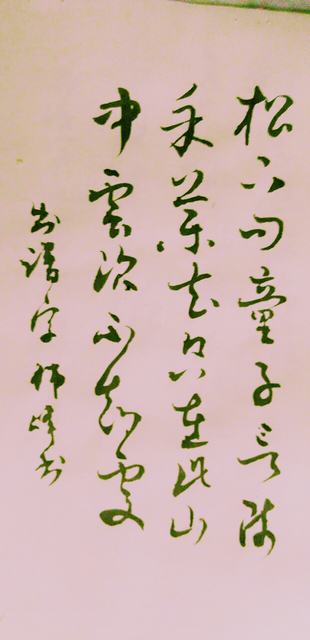 松下问童子言师
采药去只在此山
中雲深不知處
譜字峰书